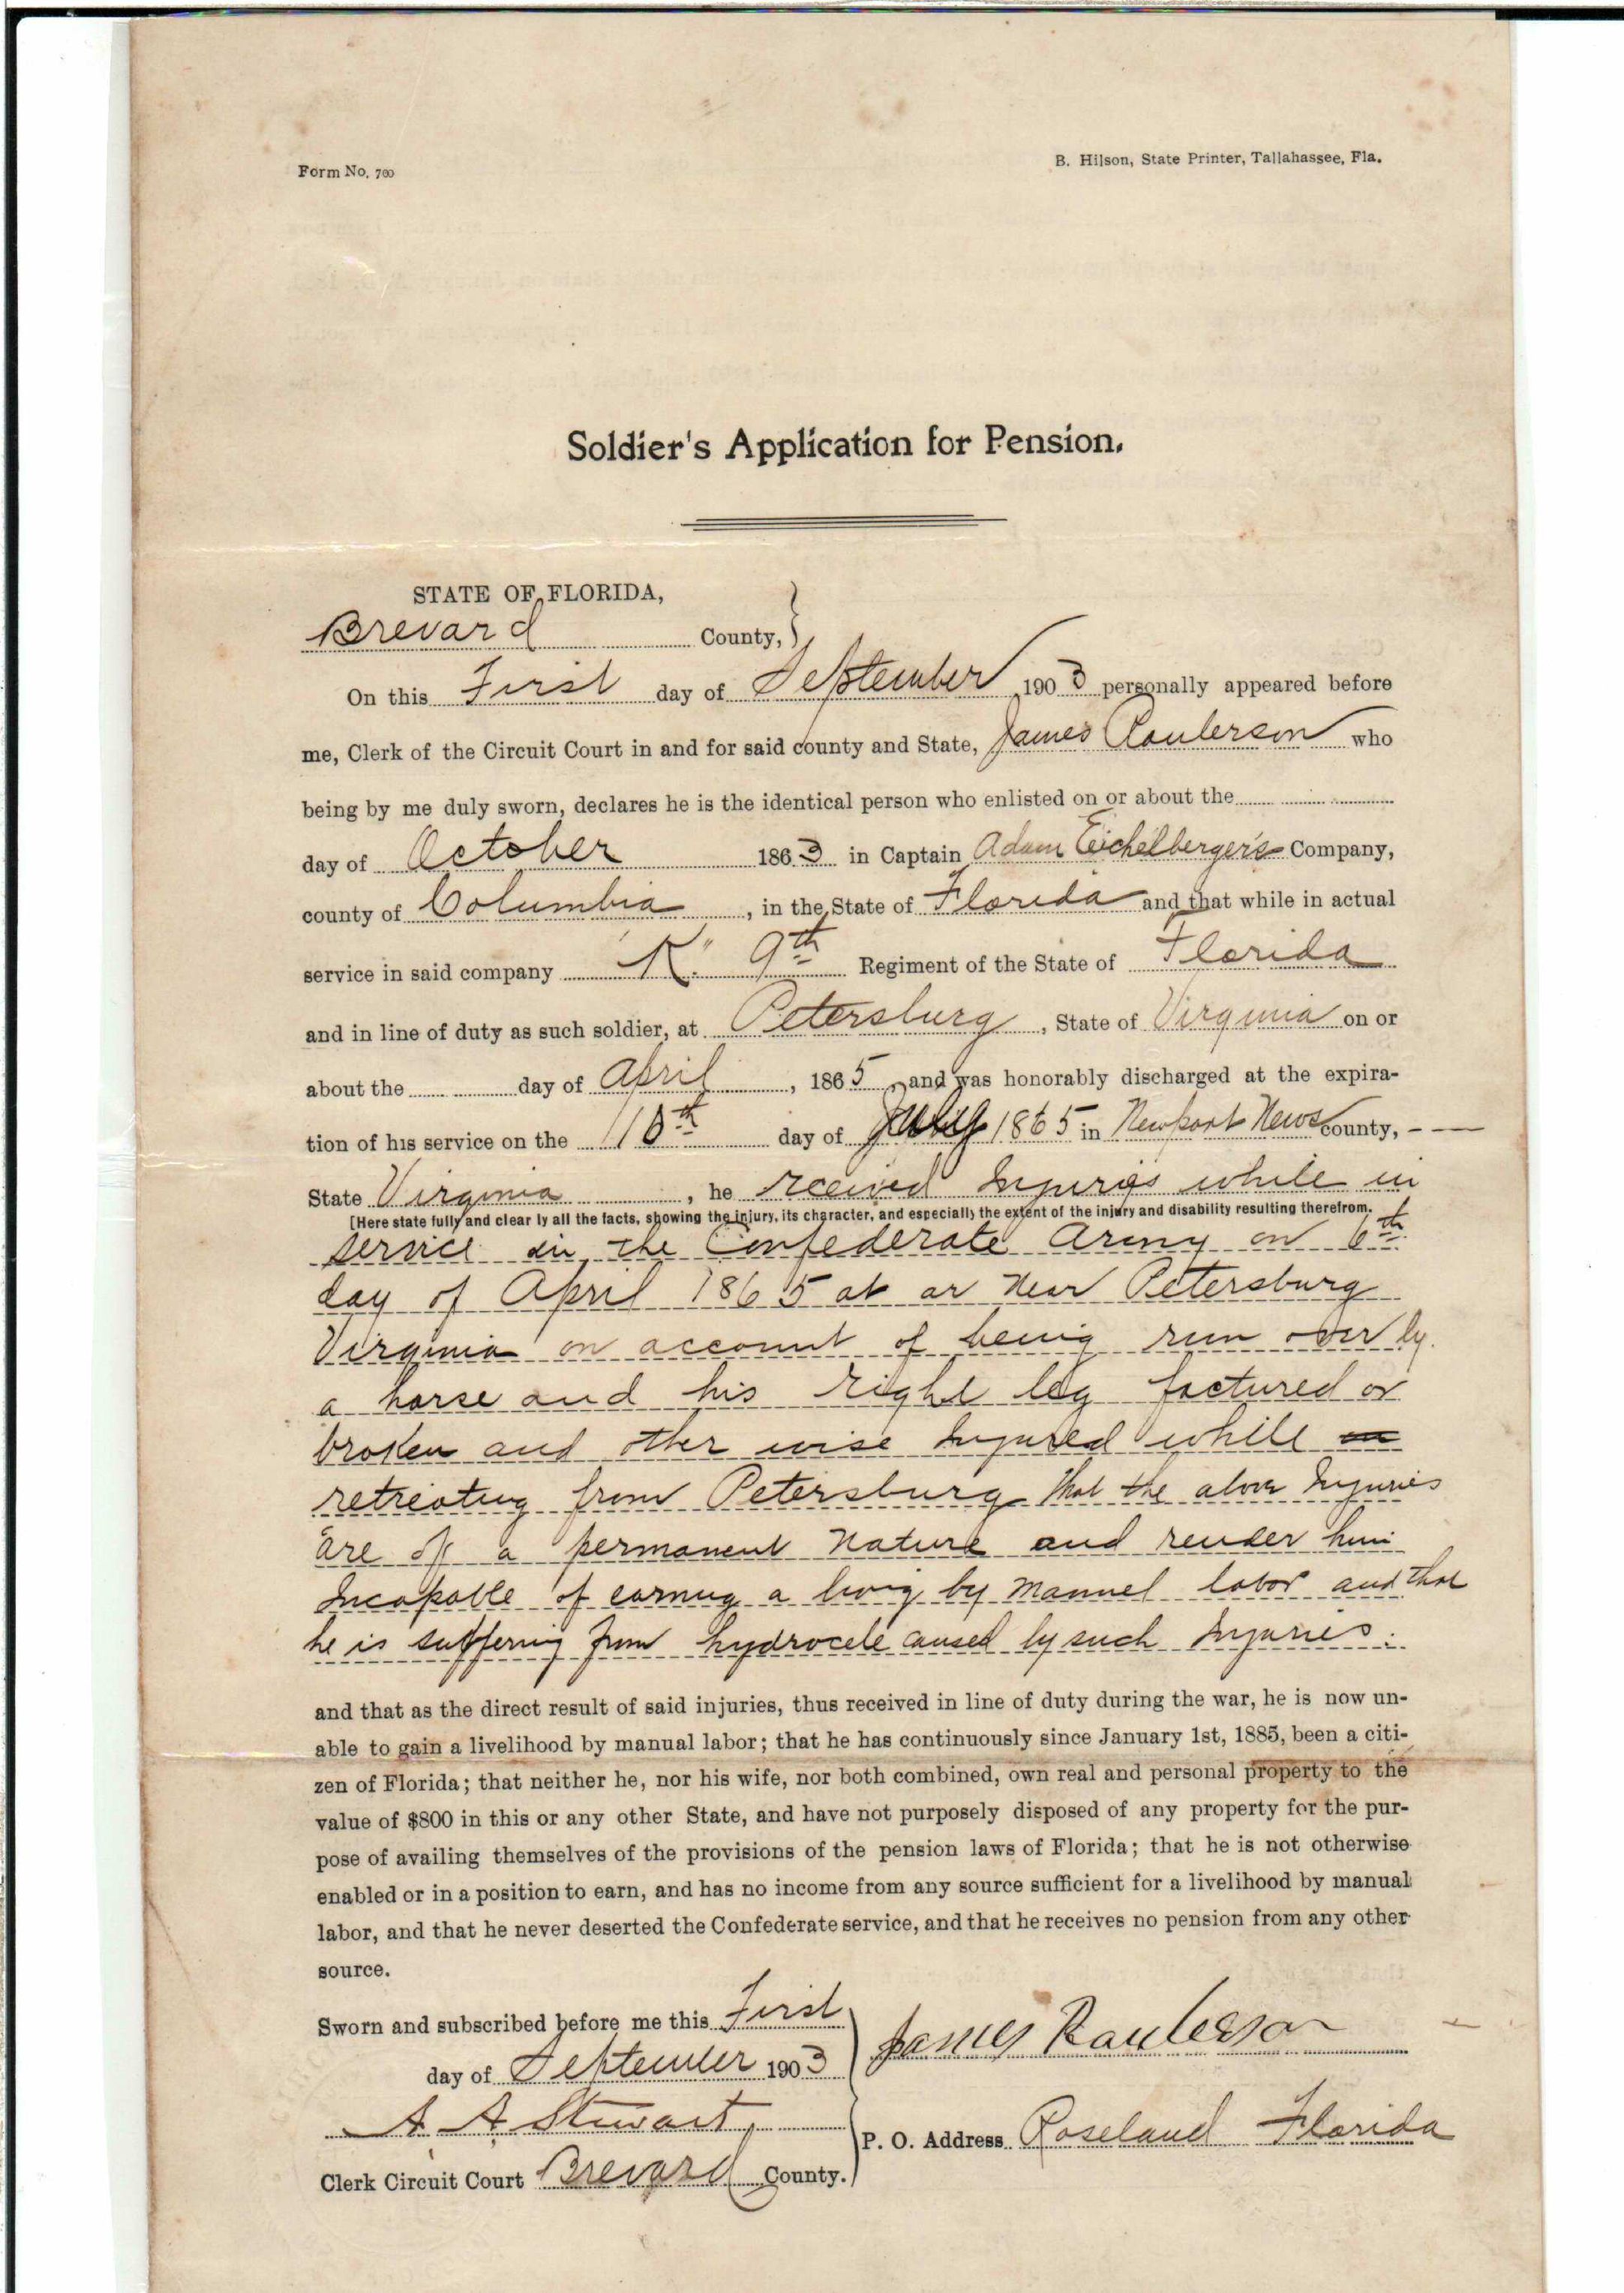 Form No. 700
B. Hilson, State Printer, Tallahassee, Fla.
Soldier's Application for Pension.
STATE OF FLORIDA,
Brevard County,
On this First day of September 1903 personally appeared before
me, Clerk of the Circuit Court in and for said county and State, James Raulerson who
being by me duly sworn, declares he is the identical person who enlisted on or about the
day of October 1863 in Captain Adam Eichelberger's Company,
county of Columbia, in the State of Florida and that while in actual
service in said company "K" 9th Regiment of the State of Florida
and in line of duty as such soldier, at Petersburg, State of Virginia on or
about the day of April, 1865, and was honorably discharged at the expira-
tion of his service on the 10th day of July 1865 in Newport News county, - —
State Virginia, he rceived Injuries while in
[Here state fully and clearly all the facts, showing the injury, its character, and especially the extent of the injury and disability resulting therefrom.
service in the Confederate Army on 6th
day of April 1865 at or near Petersburg
Virginia on account of being run over by
a horse and his right leg factured or
broken and other wise Injured while
retreating from Petersburg that the above Injuries
are of a permanent nature and render him
Incapable of earnug a livig by manuel labor and that
he is suffering from hydrocele caused by such Injuries.
and that as the direct result of said injuries, thus received in line of duty during the war, he is now un-
able to gain a livelihood by manual labor; that he has continuously since January 1st, 1885, been a citi-
zen of Florida; that neither he, nor his wife, nor both combined, own real and personal property to the
value of $800 in this or any other State, and have not purposely disposed of any property for the pur-
pose of availing themselves of the provisions of the pension laws of Florida; that he is not otherwise
enabled or in a position to earn, and has no income from any source sufficient for a livelihood by manual
labor, and that he never deserted the Confederate service, and that he receives no pension from any other
source.
Sworn and subscribed before me this First
day of September 1903
James Raulerson
A A Stewart,
P. O. Address Roseland Florida
Clerk Circuit Court Brevard County.